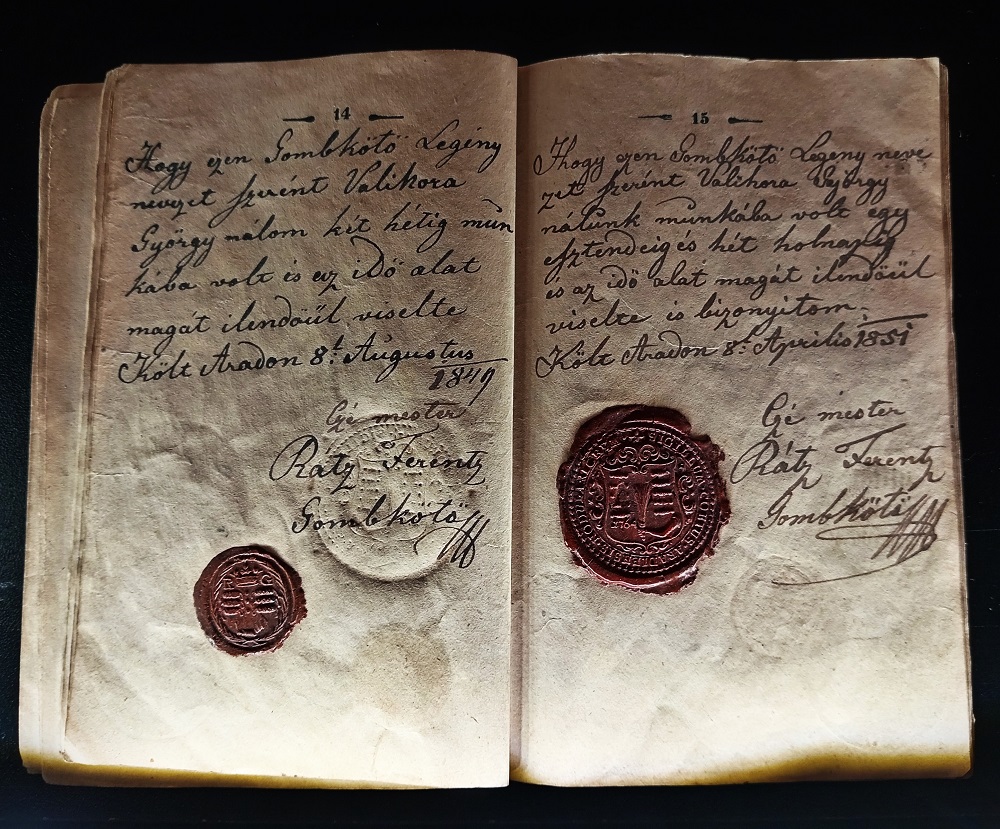 14
Hogy ezen Gombkötö Legény
nevezet szerént Valikora
György nálom két hétig mun
kába volt és az idö alat
magát ilendöűl viselte
Költ Aradon 8.t Augustus
1849
Czé mester
Ratz Ferentz
Gombkötö
15
Hogy ezen Gombkötö Legény neve
zet szerént Valikora György
nálunk munkába volt egy
esztendeig és hét holnapig
és az idö alat magát ilendöűl
viselte is bizonyitom.
Költ Aradon 8.t Aprilis 1851
Czé mester
Rátz Ferentz
Gombkötö
1764